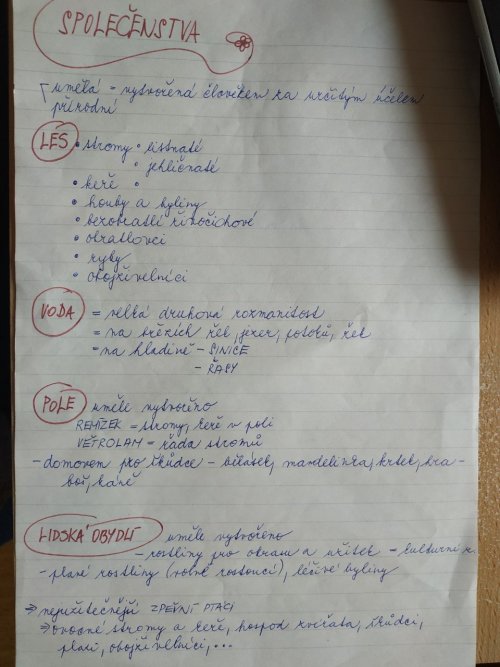 SPOLEČENSTVA
umělá = vytvořená člověkem za určitým účelem
přírodní
LES • stromy • listnaté
• jehličnaté
• keře •
• houby a byliny
• bezobratlí živočichové
• obratlovci
• ryby
• obojživelníci
VODA = velká druhová rozmanitost
= na březích řek, jezer, potoků, řek
= na hladině - SINICE
- ŘASY
POLE uměle vytvořeno
REMÍZEK = stromy, keře v poli
VĚTROLAM = řada stromů
- domovem pro škůdce - bělásek, mandelinka, krtek, hra-
boš, káně
LIDSKÁ OBYDLÍ uměle vytvořeno
- rostliny pro okrasu a užitek - kulturní r.
- plané rostliny (volně rostoucí), léčivé byliny
⇒ nejužitečnější ZPĚVNÍ PTÁCI
⇒ ovocné stromy a keře, hospod. zvířata, škůdci,
plazi, obojživelníci, ...